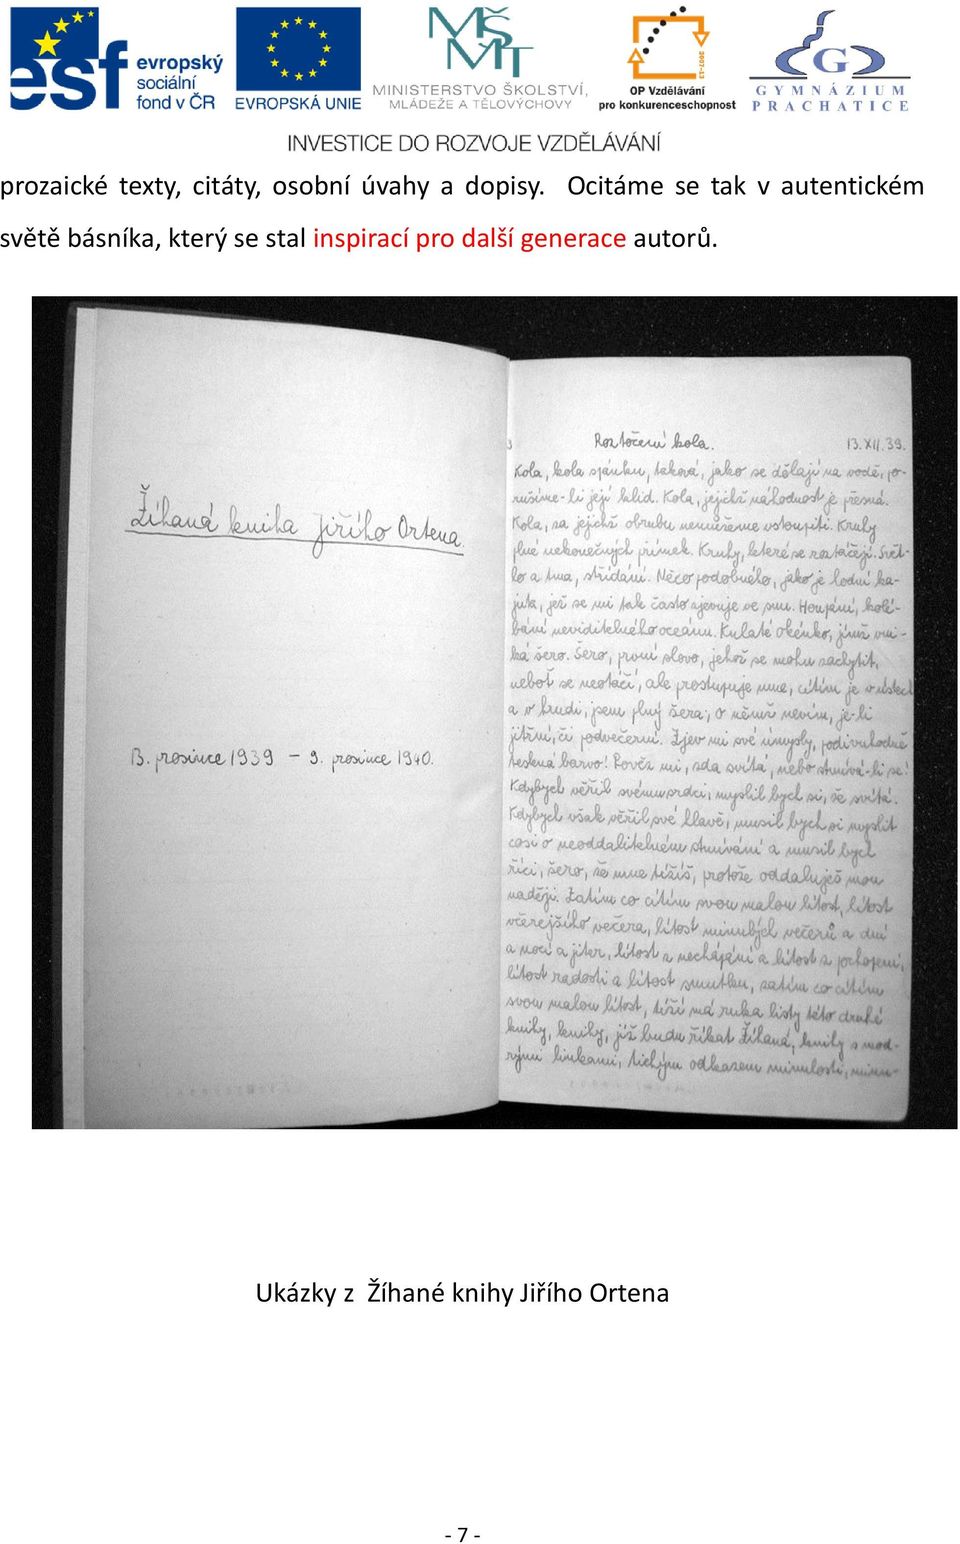 esf evropský
sociální
fond v ČR
EVROPSKÁ UNIE
MŠMT
MINISTERSTVO ŠKOLSTVÍ,
MLÁDEŽE A TĚLOVÝCHOVY
2007-13
OP Vzdělávání
pro konkurenceschopnost
G
GYMNÁZIUM
PRACHATICE
INVESTICE DO ROZVOJE VZDĚLÁVÁNÍ
prozaické texty, citáty, osobní úvahy a dopisy. Ocitáme se tak v autentickém
světě básníka, který se stal inspirací pro další generace autorů.
Žíhaná kniha Jiřího Ortena.
13. prosince 1939 – 9. prosince 1940.
3 Roztočení kola. 13.XII.39.
Kola, kola spánku, taková, jako se dělají na vodě, po-
rušíme-li její klid. Kola, jejichž náhodnost je přesná.
Kola, za jejichž obrubu nemůžeme vstoupiti. Kruhy
plné nekonečných přímek. Kruhy, které se roztáčejí. Svět-
lo a tma, střídání. Něco podobného, jako je lodní ka-
juta, jež se mi tak často zjevuje ve snu. Houpání, kolé-
bání neviditelného oceánu. Kulaté okénko, jímž vni-
ká šero. Šero, první slovo, jehož se mohu zachytit,
neboť se neotáčí, ale prostupuje mne, cítím je v ústech
a v hrudi, jsem plný šera, o němž nevím, je-li
jitřní, či podvečerní. Zjev mi své úmysly, podivuhodně
teskná barvo! Pověz mi, zda svítá, nebo stmívá-li se!
Kdybych věřil svému srdci, myslil bych si, že svítá.
Kdybych však věřil své hlavě, musil bych si myslit
cosi o neoddalitelném stmívání a musil bych
říci, šero, že mne tížíš, protože oddaluješ mou
naději. Zatím co cítím svou malou lítost, lítost
včerejšího večera, lítost minulých večerů a dní
a nocí a jiter, lítost z nechápání a lítost z pochopení,
lítost radosti a lítost smutku, zatím co cítím
svou malou lítost, tíží má ruka listy této druhé
knihy, knihy, jíž budu říkat Žíhaná, knihy s mod-
rými linkami, tichým odkazem minulosti, minu-
Ukázky z Žíhané knihy Jiřího Ortena
- 7 -